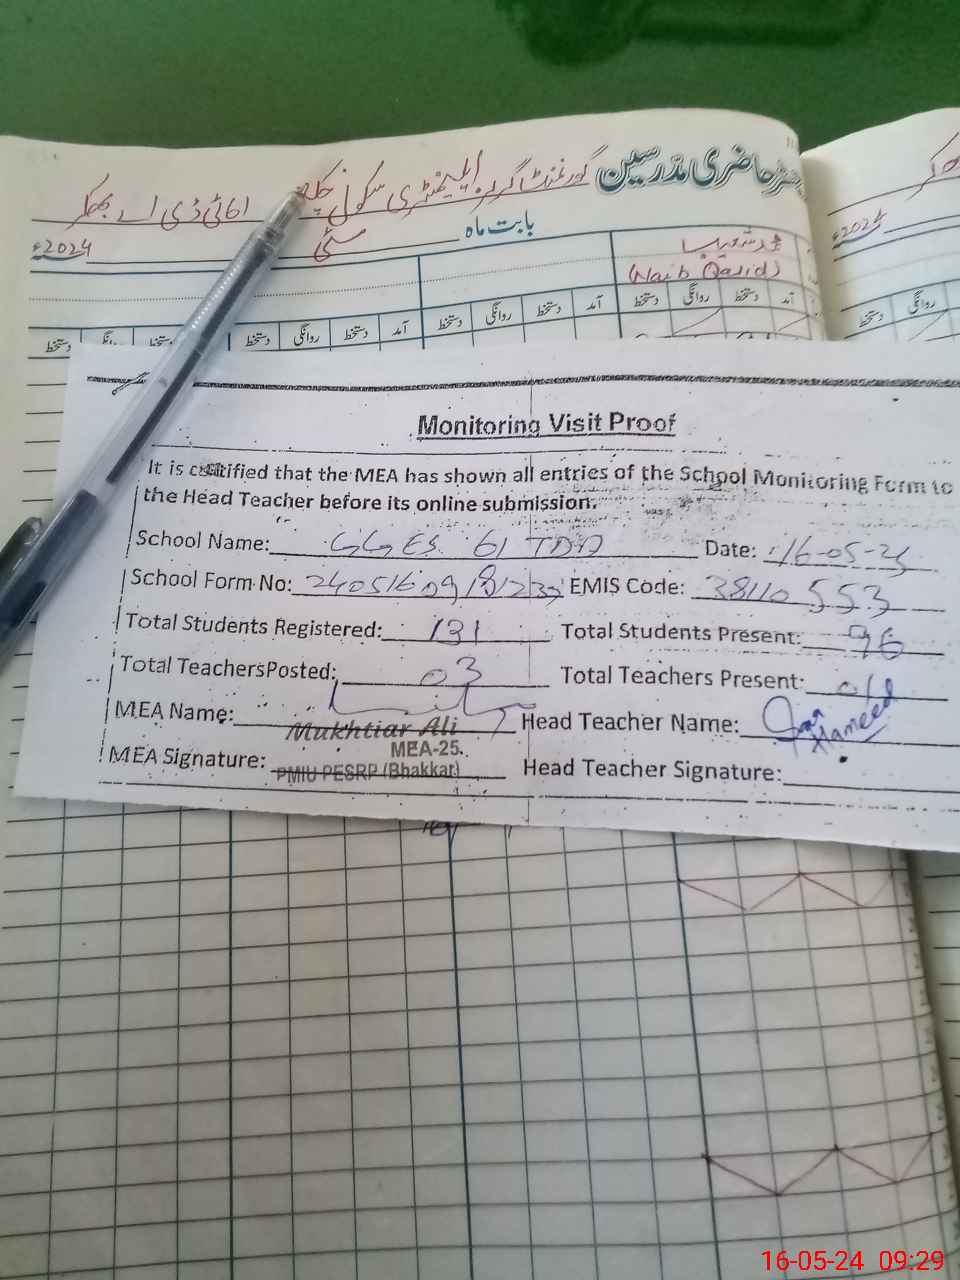 رجسٹر حاضری مدرسین گورنمنٹ گرلز ایلیمنٹری سکول چک 61 ٹی ڈی اے بھکر
بابت ماہ مئی 2024ء
محمد شعیب
(Naib Qasid)
آمد دستخط روانگی دستخط آمد دستخط روانگی دستخط آمد دستخط روانگی دستخط
2024ء
روانگی دستخط
Monitoring Visit Proof
It is certified that the MEA has shown all entries of the School Monitoring Form to
the Head Teacher before its online submission.
School Name: GGES 61 TDA Date: 16-05-24
School Form No: EMIS Code: 38110553
Total Students Registered: 131 Total Students Present: 96
Total Teachers Posted: 03 Total Teachers Present:
MEA Name: Mukhtiar Ali Head Teacher Name: Hameed
MEA-25.
MEA Signature: PMIU PESRP (Bhakkar) Head Teacher Signature:
16-05-24 09:29